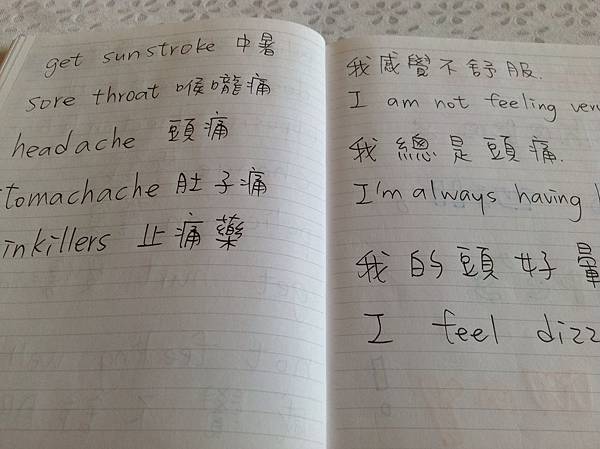 get sunstroke 中暑
sore throat 喉嚨痛
headache 頭痛
tomachache 肚子痛
inkillers 止痛藥
我感覺不舒服.
I am not feeling ver
我總是頭痛.
I'm always having
我的頭好暈
I feel dizz